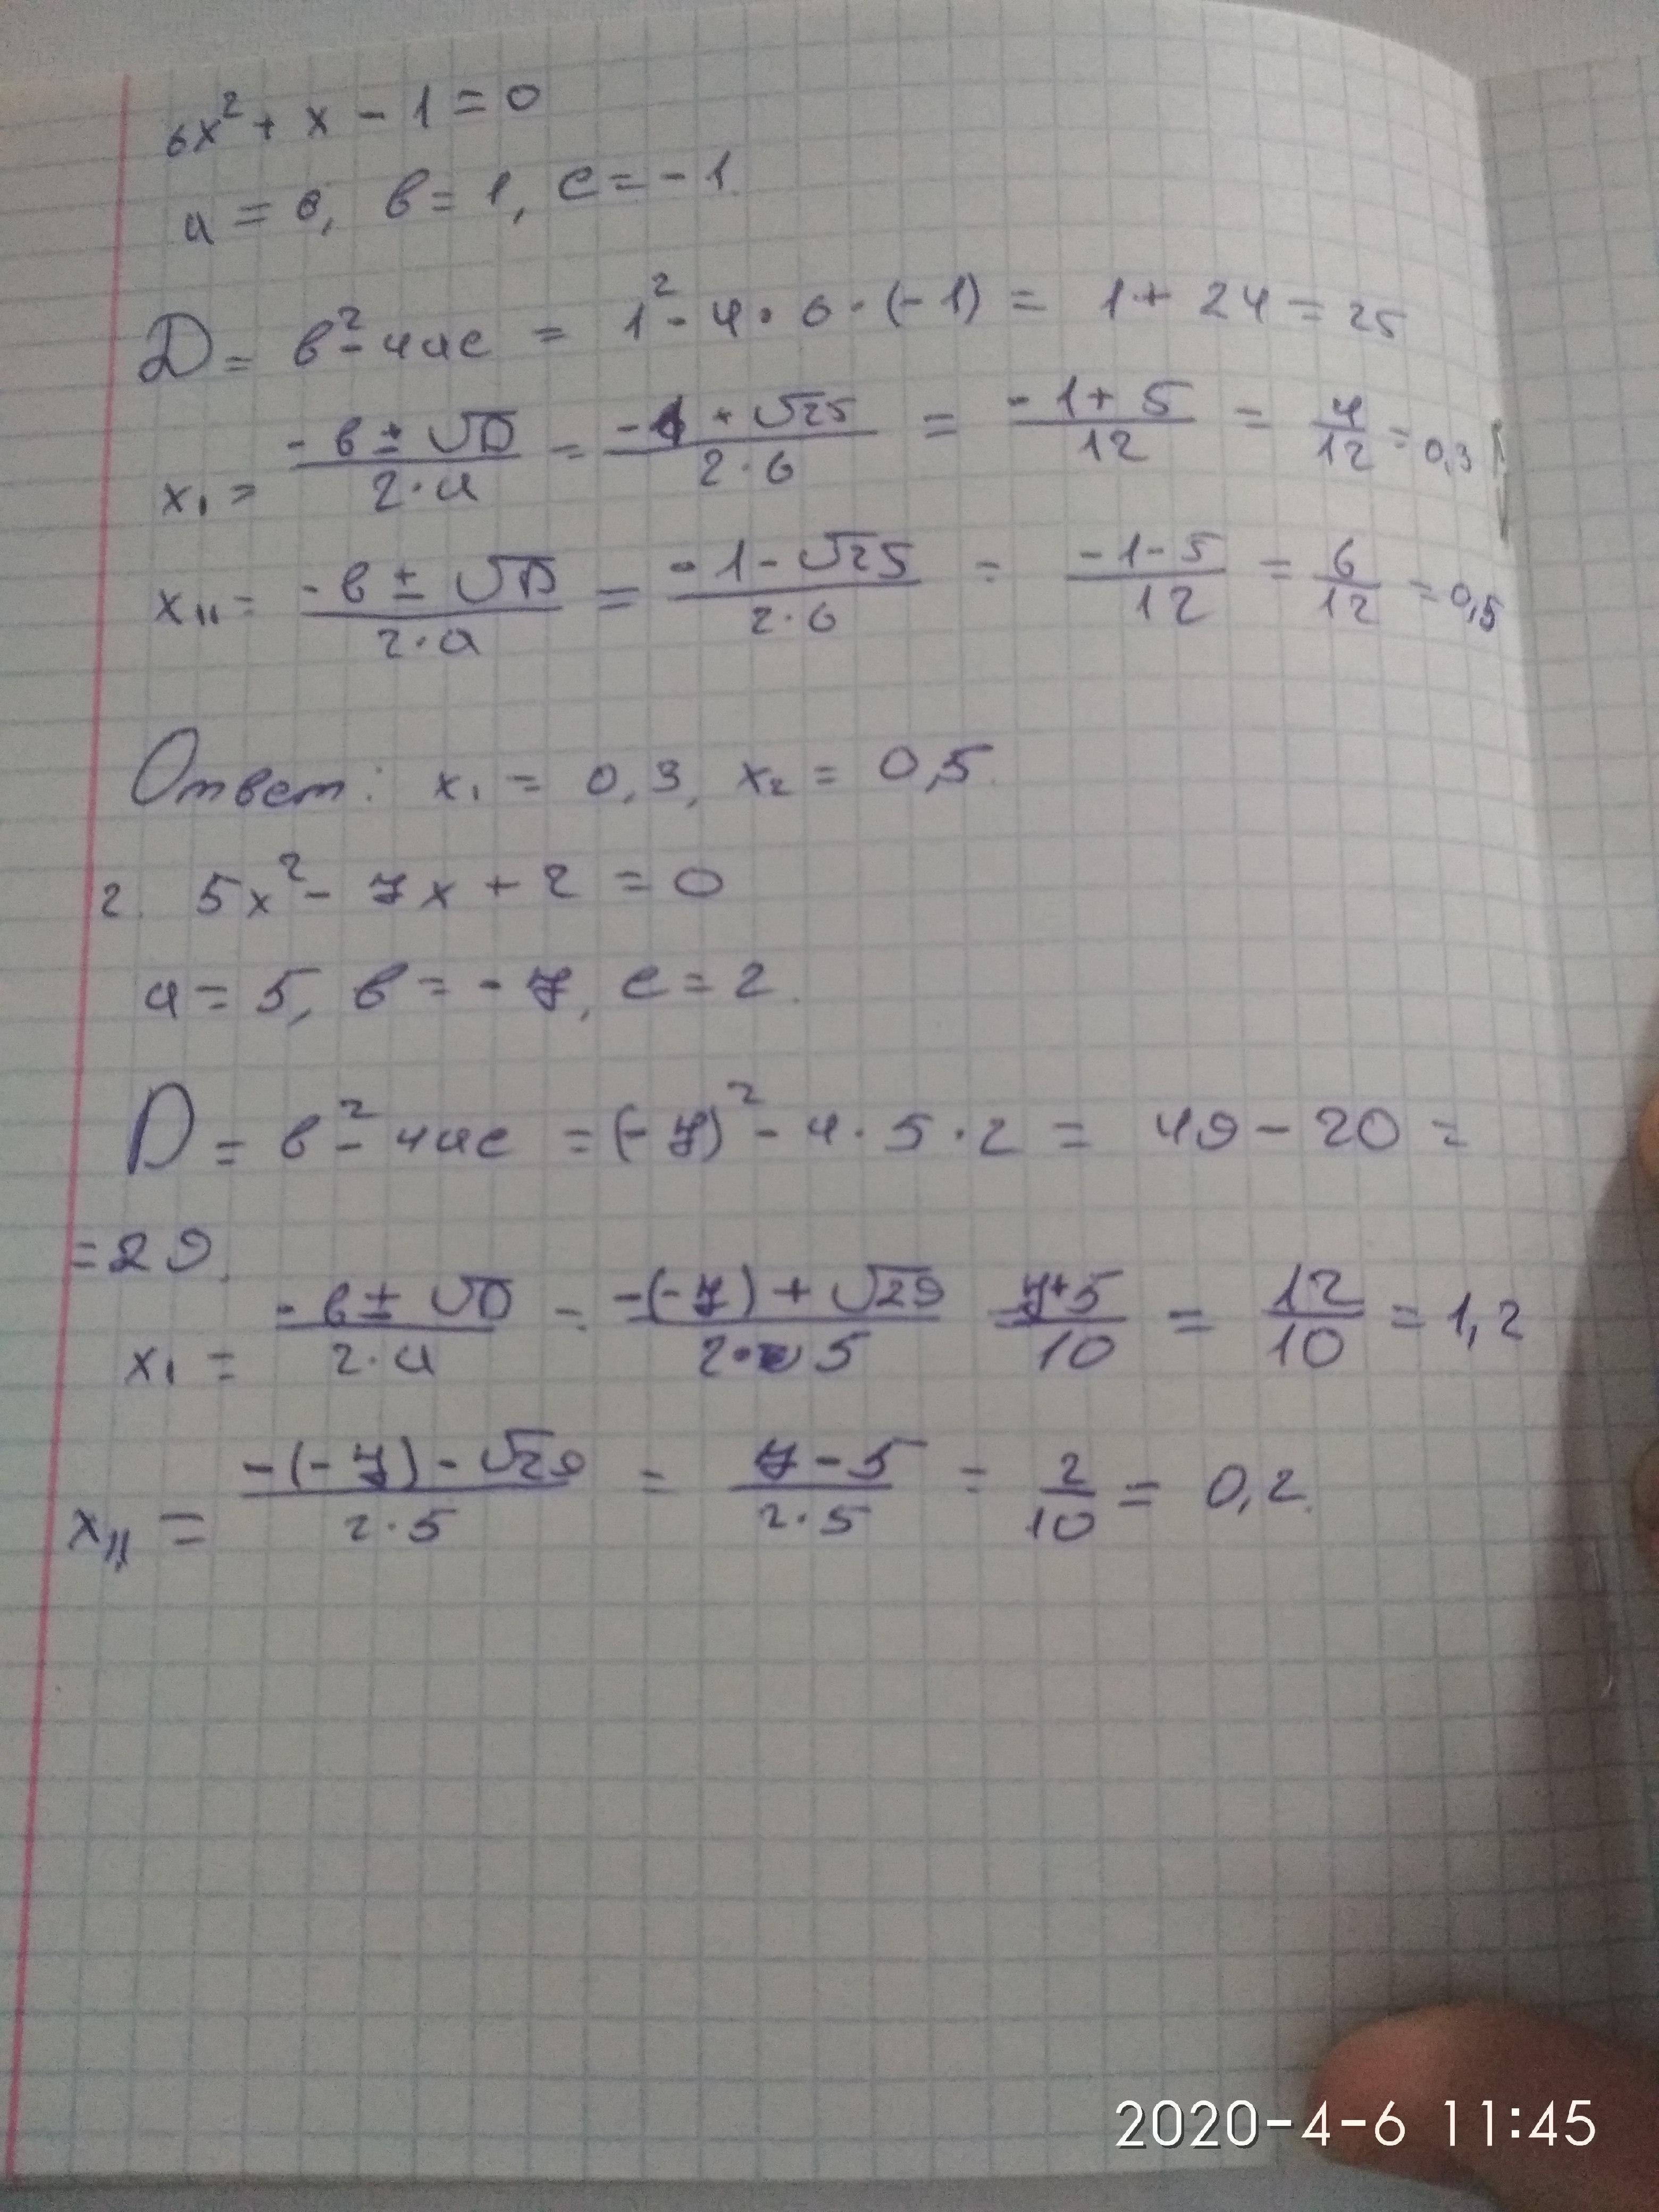 6x² + x - 1 = 0
a = 6, в = 1, c = -1.
D = в² - 4ac = 1² - 4 · 6 · (-1) = 1 + 24 = 25
x₁ = (-в ± √D)/(2·a) = (-1 + √25)/(2·6) = (-1 + 5)/12 = 4/12 = 0,3
x₁₁ = (-в ± √D)/(2·a) = (-1 - √25)/(2·6) = (-1 - 5)/12 = 6/12 = 0,5
Ответ: x₁ = 0,3, x₂ = 0,5.
2. 5x² - 7x + 2 = 0
a = 5, в = -7, c = 2.
D = в² - 4ac = (-7)² - 4 · 5 · 2 = 49 - 20 =
= 29.
x₁ = (-в ± √D)/(2·a) = (-(-7) + √29)/(2·5) (7+5)/10 = 12/10 = 1,2
x₁₁ = (-(-7) - √29)/(2·5) = (7 - 5)/(2·5) = 2/10 = 0,2.
2020-4-6 11:45